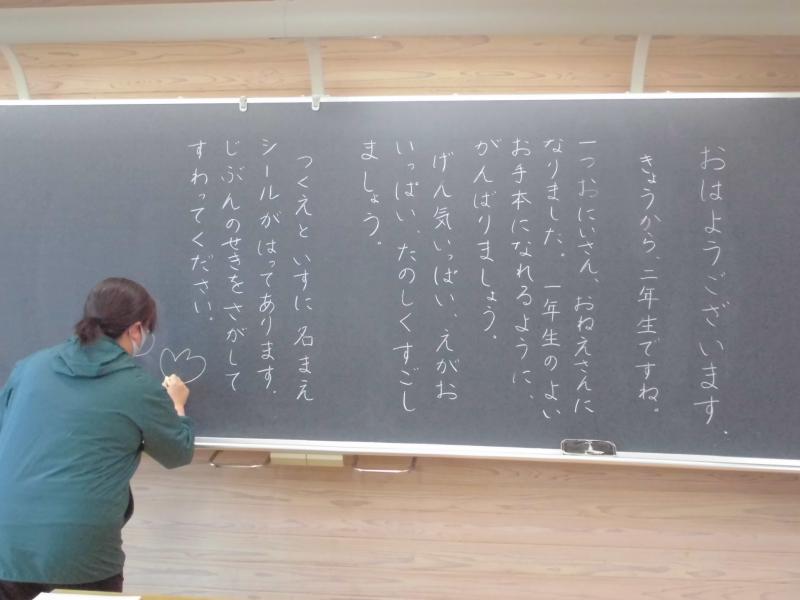 おはようございます。
きょうから、二年生ですね。
一つおにいさん、おねえさんに
なりました。一年生のよい
お手本になれるように、
がんばりましょう。
げん気いっぱい、えがお
いっぱい、たのしくすごし
ましょう。
つくえといすに名まえ
シールがはってあります。
じぶんのせきをさがして
すわってください。